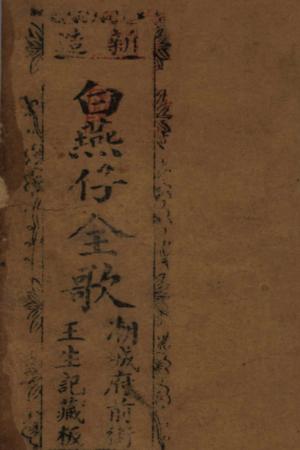 新造
白燕仔全歌
潮城府前街
王生記藏板